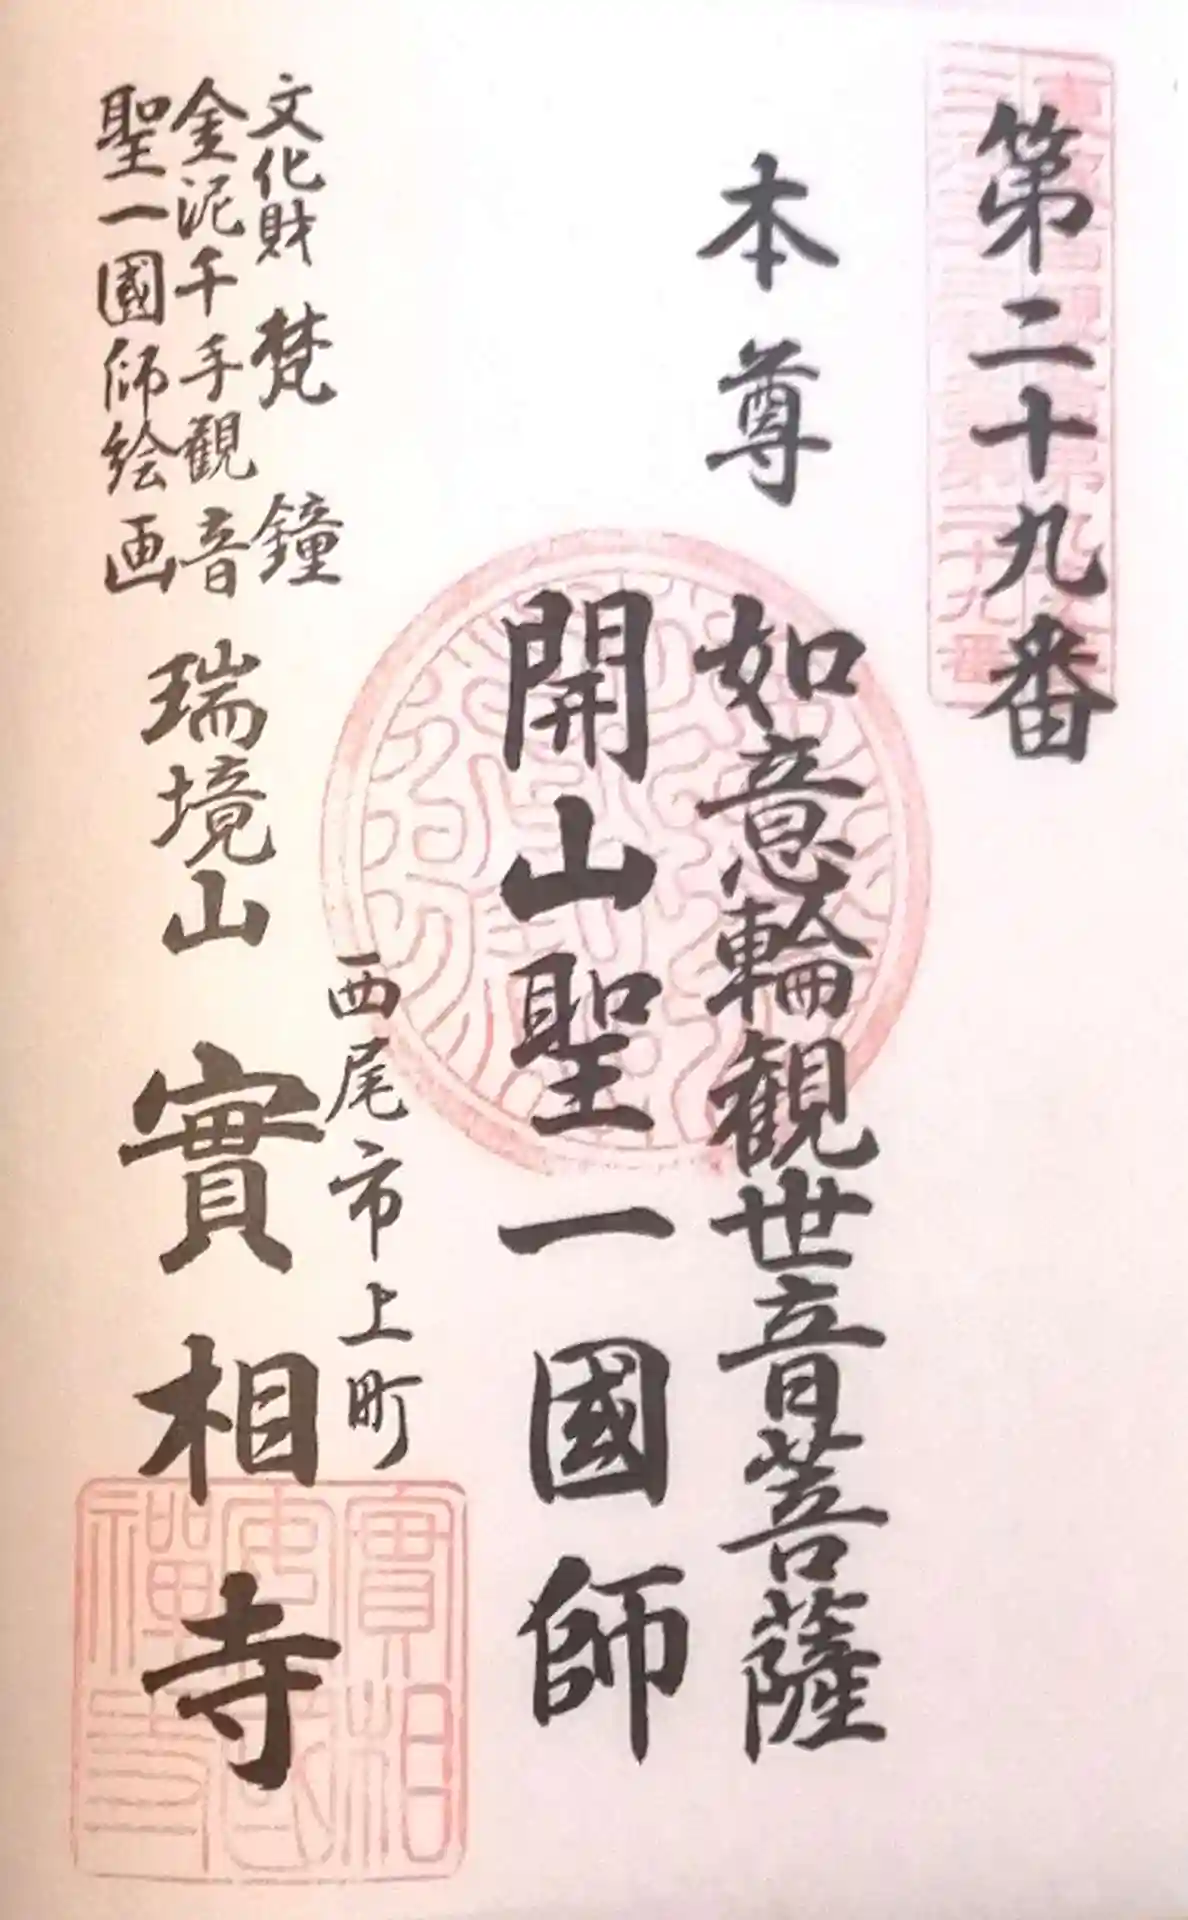 第二十九番
本尊
如意輪観世音菩薩
開山聖一國師
西尾市上町
文化財 梵鐘
金泥千手観音
聖一國師絵画
瑞境山
實相寺